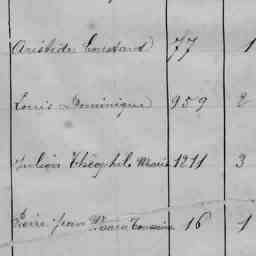 Aristide Constant 77 1
Louis Dominique 959 2
Théophile Marie 1211 3
Pierre Jean Toussaint 16 4